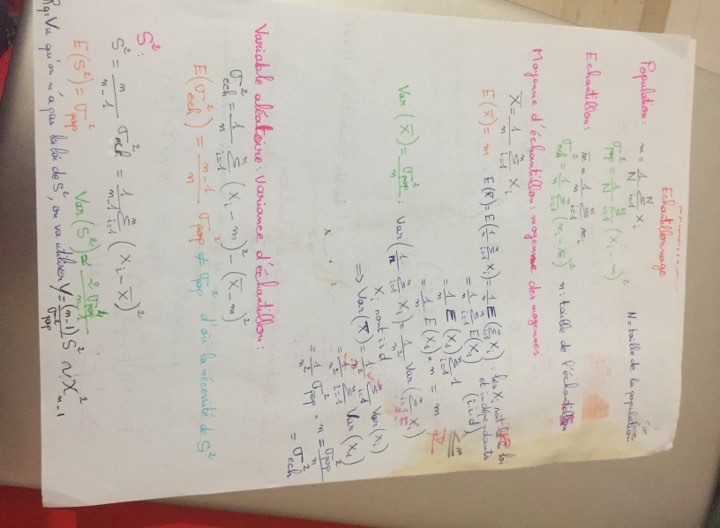 Echantillonnage
Population: m = 1/N Σ_{i=1}^{N} X_i
N = taille de la population
σ²_pop = 1/N Σ_{i=1}^{N} (X_i - m)²
Echantillon: x̄ = 1/n Σ_{i=1}^{n} x_i
σ²_ech = 1/n Σ_{i=1}^{n} (x_i - x̄)² n: taille de l'échantillon
Moyenne d'échantillon: moyenne des moyennes
X̄ = 1/n Σ_{i=1}^{n} X_i
E(X̄) = m . E(X̄) = E(1/n Σ_{i=1}^{n} X_i) = 1/n E(Σ_{i=1}^{n} X_i) : les X_i suit loi
et indépendants
= 1/n Σ_{i=1}^{n} E(X_1) (i.i.d)
= 1/n E(X_1) Σ_{i=1}^{n} 1
= 1/n E(X_1) × n = m
Var(X̄) = σ²_pop/n : Var(1/n Σ_{i=1}^{n} X_i) = 1/n² Var(Σ_{i=1}^{n} X_i)
X_i sont iid
⇒ Var(X̄) = 1/n² Σ_{i=1}^{n} Var(X_i)
= 1/n² Σ_{i=1}^{n} Var(X_1)
= 1/n² σ²_pop · n = σ²_pop/n
= σ²_ech
Variable aléatoire: variance d'échantillon:
σ²_ech = 1/n Σ_{i=1}^{n} (X_i - m)² - (X̄ - m)²
E(σ²_ech) = n-1/n σ²_pop ≠ σ²_pop d'où la nécessité de S²
S²:
S² = n/n-1 σ²_ech = 1/n-1 Σ_{i=1}^{n} (X_i - X̄)²
E(S²) = σ²_pop Var(S²) ≃ 2σ⁴_pop/n-1
Rq: Vu qu'on n'a pas la loi de S², on va utiliser Y = (n-1)/σ²_pop S² ~ X²_{n-1}